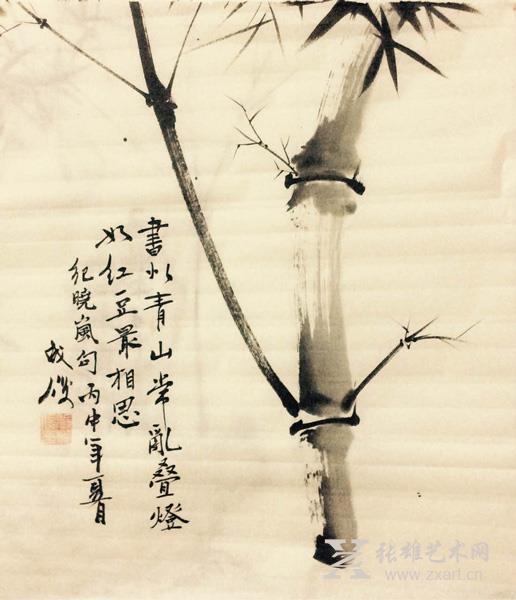 書似青山常亂疊燈
如紅豆最相思
紀曉嵐句丙申年夏月
成俊
张雄艺术网
www.zxart.cn